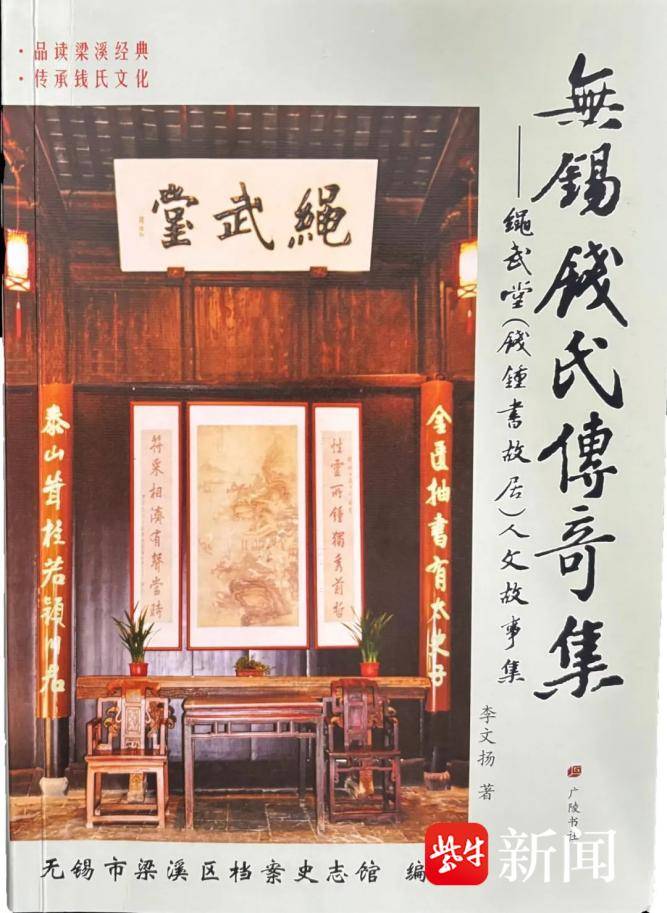 ·品读梁溪经典
·传承钱氏文化
無錫錢氏傳奇集
——繩武堂(錢鍾書故居)人文故事集
李文扬 著
广陵书社
繩武堂
金匱抽書有太史子
泰山聳桂若潁川君
性靈所鍾獨秀前哲
符采相濟有聲當時
无锡市梁溪区档案史志馆 编
紫牛新闻